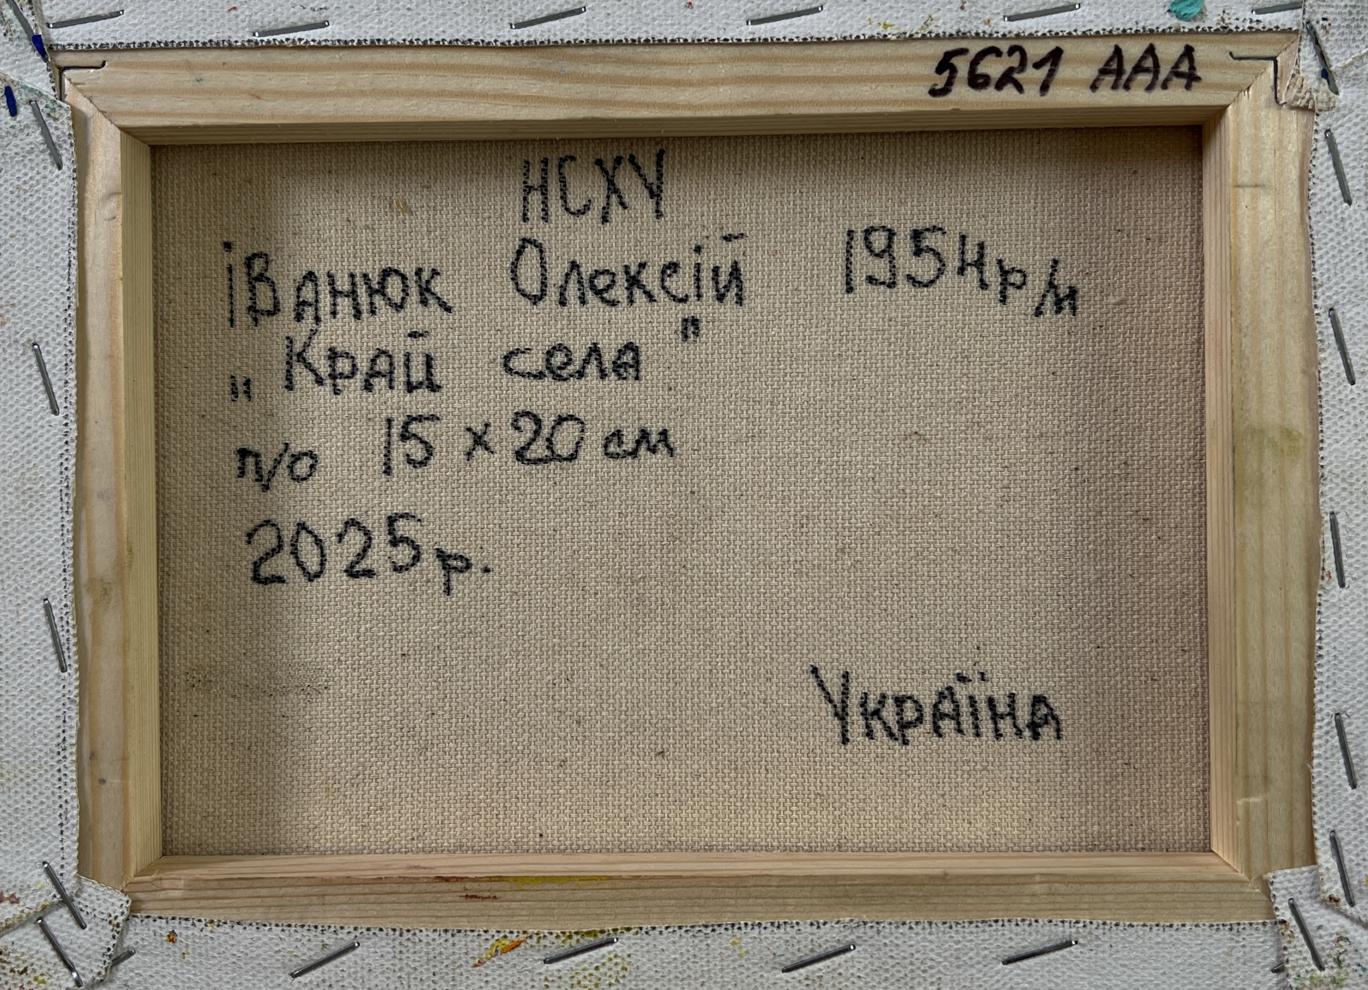 5621 ААА
НСХУ
іВанюк Олексій 1954р/н
„Край села"
п/о 15 x 20 см
2025р.
Україна